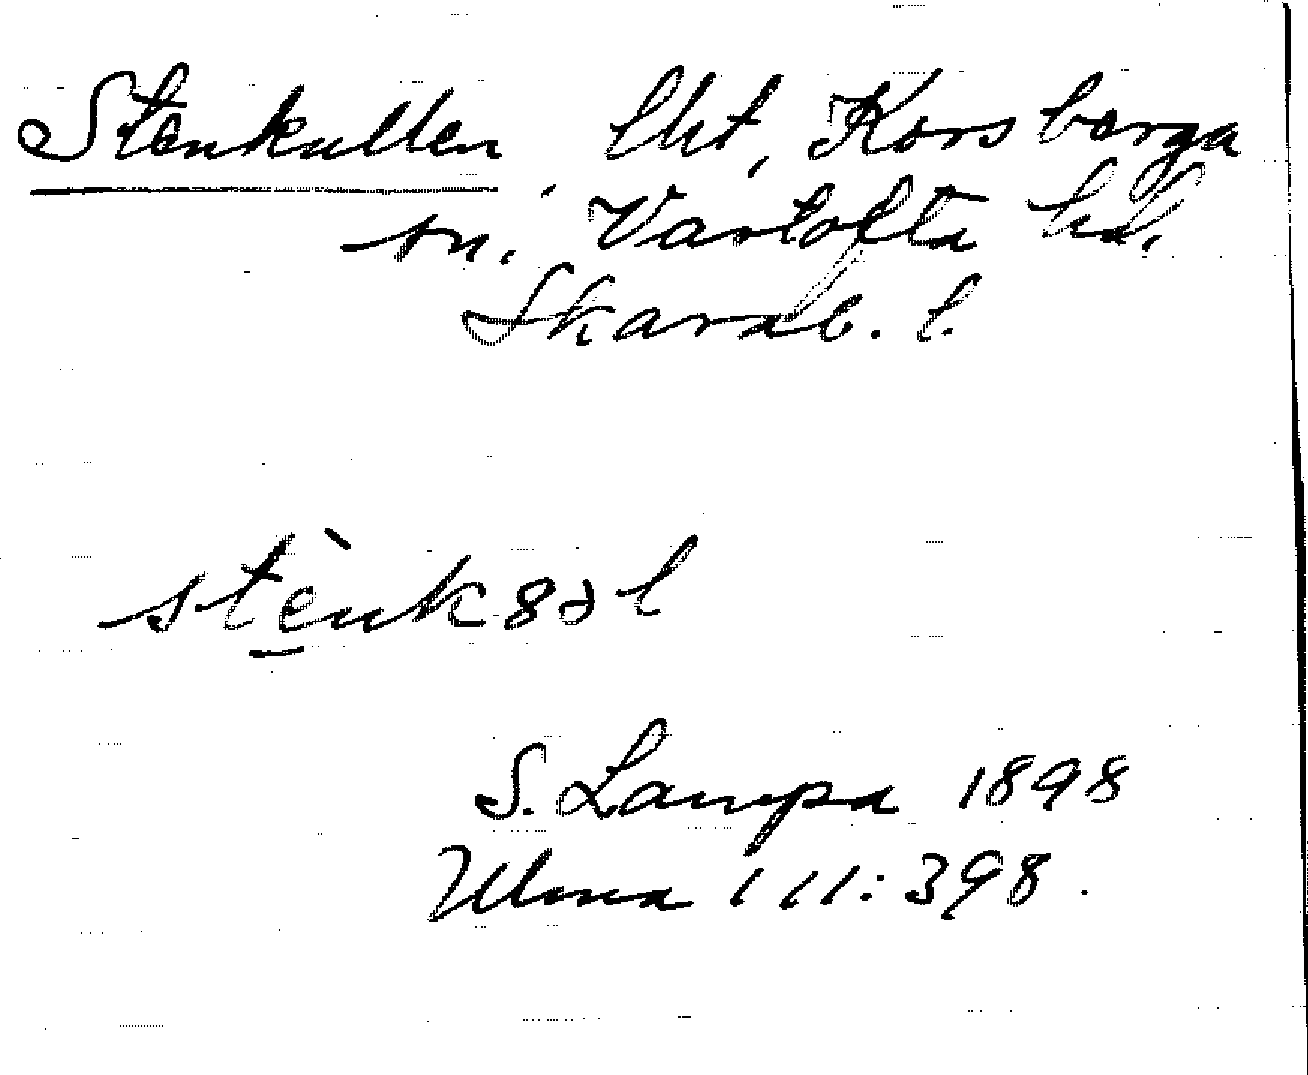 Stenkullen lht, Korsberga
sn, Vartofta hd,
Skarab. l.
stènk8əl
S. Lampa 1898
Ulma 111:398.